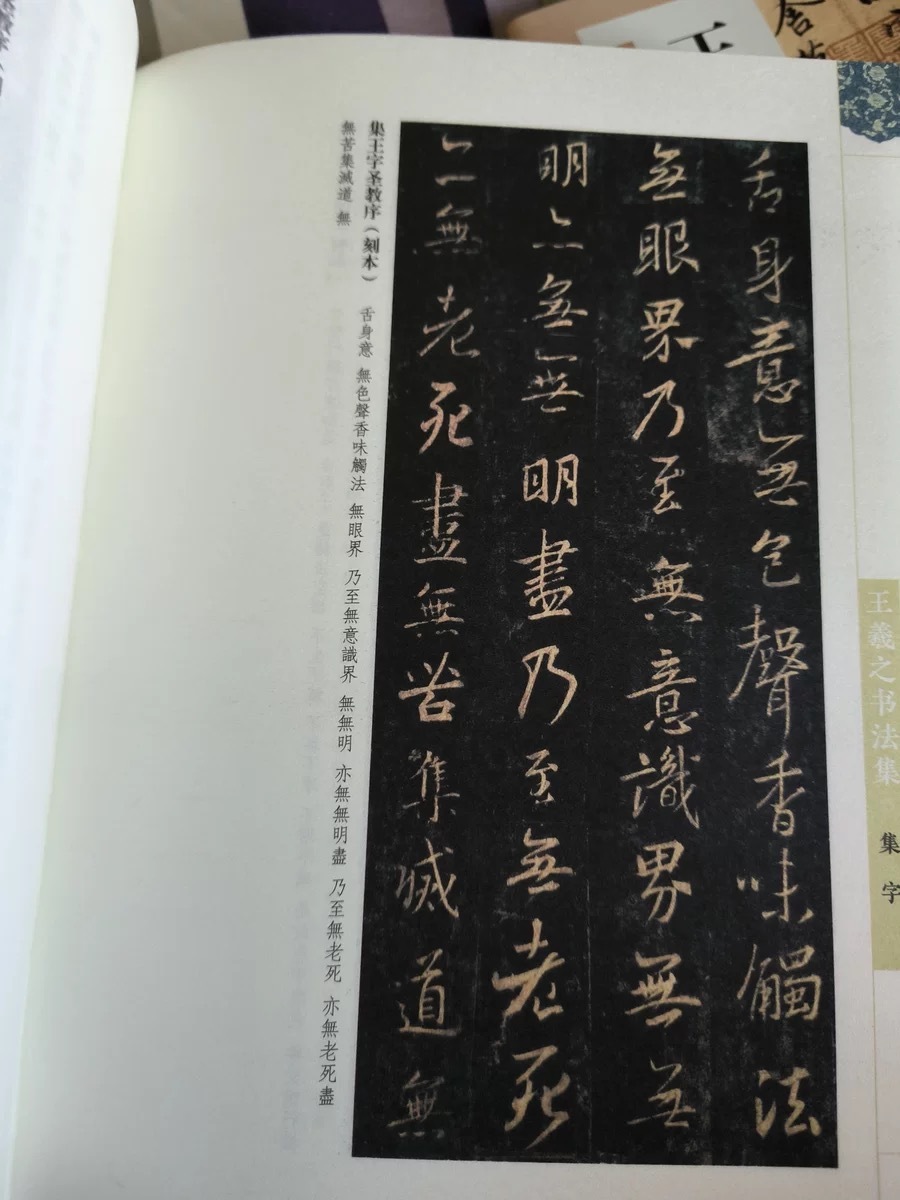 王羲之书法集
集字
舌身意無色聲香味觸法
無眼界乃至無意識界無無
明亦無無明盡乃至無老死
亦無老死盡無苦集滅道無
集王字圣教序（刻本） 舌身意 無色聲香味觸法 無眼界 乃至無意識界 無無明 亦無無明盡 乃至無老死 亦無老死盡
無苦集滅道 無